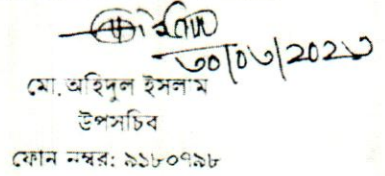 ৩০/০৩/২০২৩
মো. অহিদুল ইসলাম
উপসচিব
ফোন নম্বর: ৯১৮০৭৯৮